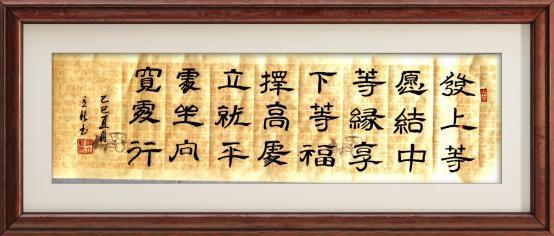 發上等
愿結中
等緣享
下等福
擇高處
立就平
處坐向
寬處行
乙巳夏月